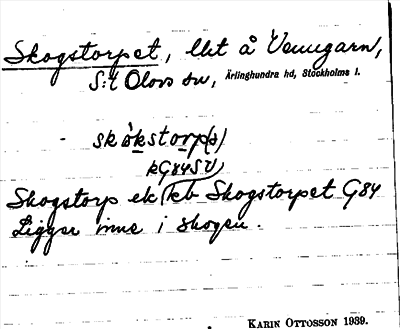 Skogstorpet, lht å Venngarn,
S:t Olovs sn, Ärlinghundra hd, Stockholms l.
skòkstorp(s)
kG84SV
Skogstorp ek (kb Skogstorpet G84
Ligger inne i skogen.
KARIN OTTOSSON 1939.